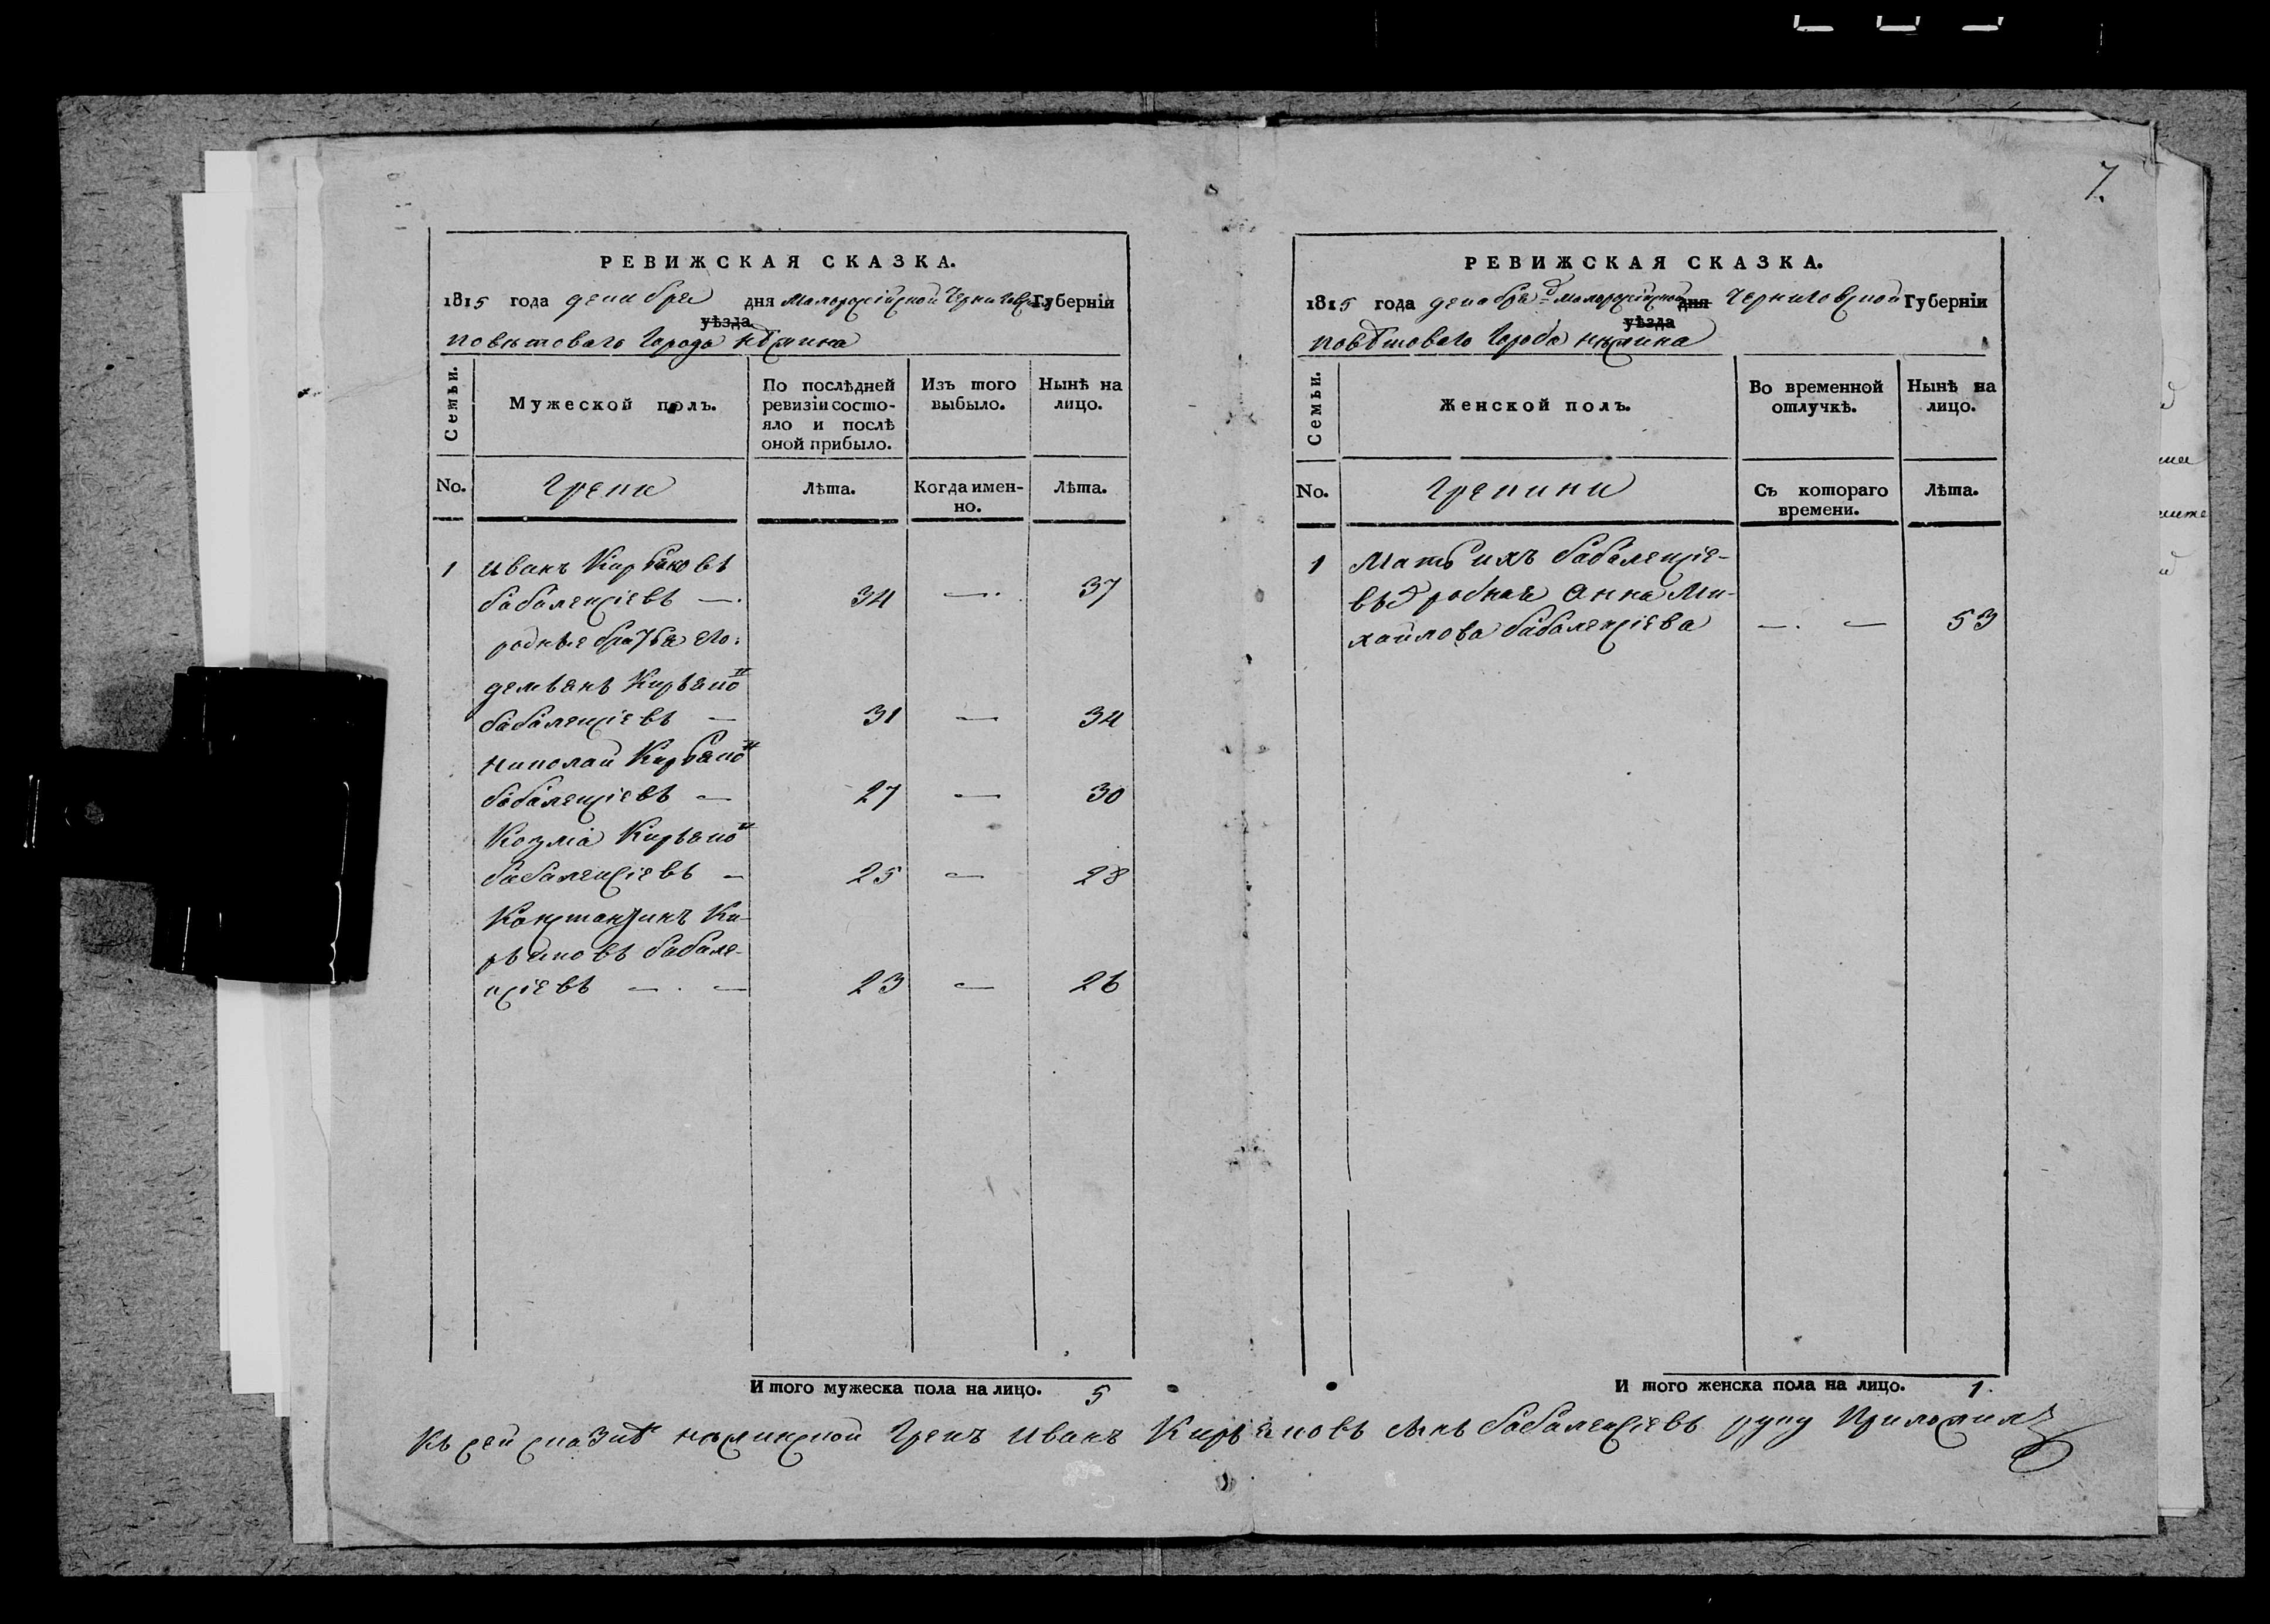 7.
РЕВИЖСКАЯ СКАЗКА.
1815 года декабря дня Малороссійской Черниговской Губерніи
уѣзда
повѣтоваго города Нѣжина
Семьи.
Мужеской полъ.
По послѣдней ревизіи состо-
яло и послѣ
оной прибыло.
Изъ того
выбыло.
Нынѣ на
лицо.
No.
Греки
Лѣта.
Когда имен-
но.
Лѣта.
1 Иванъ Кирьяковъ
бабаленсіевъ —. 34 —. 37
родные братья его:
демьянъ Кирьяко
бабаленсіевъ — 31 — 34
николай Кирьяко
бабаленсіевъ — 27 — 30
Козміа Кирьяко
бабаленсіевъ — 25 — 28
Константинъ Ки-
рьяковъ бабале-
нсіевъ —.— 23 — 26
Итого мужеска пола на лицо. 5
РЕВИЖСКАЯ СКАЗКА.
1815 года декабря Малороссійской дня Черниговской Губерніи
уѣзда
повѣтоваго города нѣжина
Семьи.
Женской полъ.
Во временной
отлучкѣ.
Нынѣ на
лицо.
No.
Грекини
Съ котораго
времени.
Лѣта.
1 Мать ихъ бабаленсіе-
выхъ родная Анна Ми-
хайлова бабаленсіева —. — 53
И того женска пола на лицо. 1.
Къ сей сказкѣ нѣжинской Грекъ Иванъ Кирьяковъ сынъ бабаленсіевъ руку приложилъ